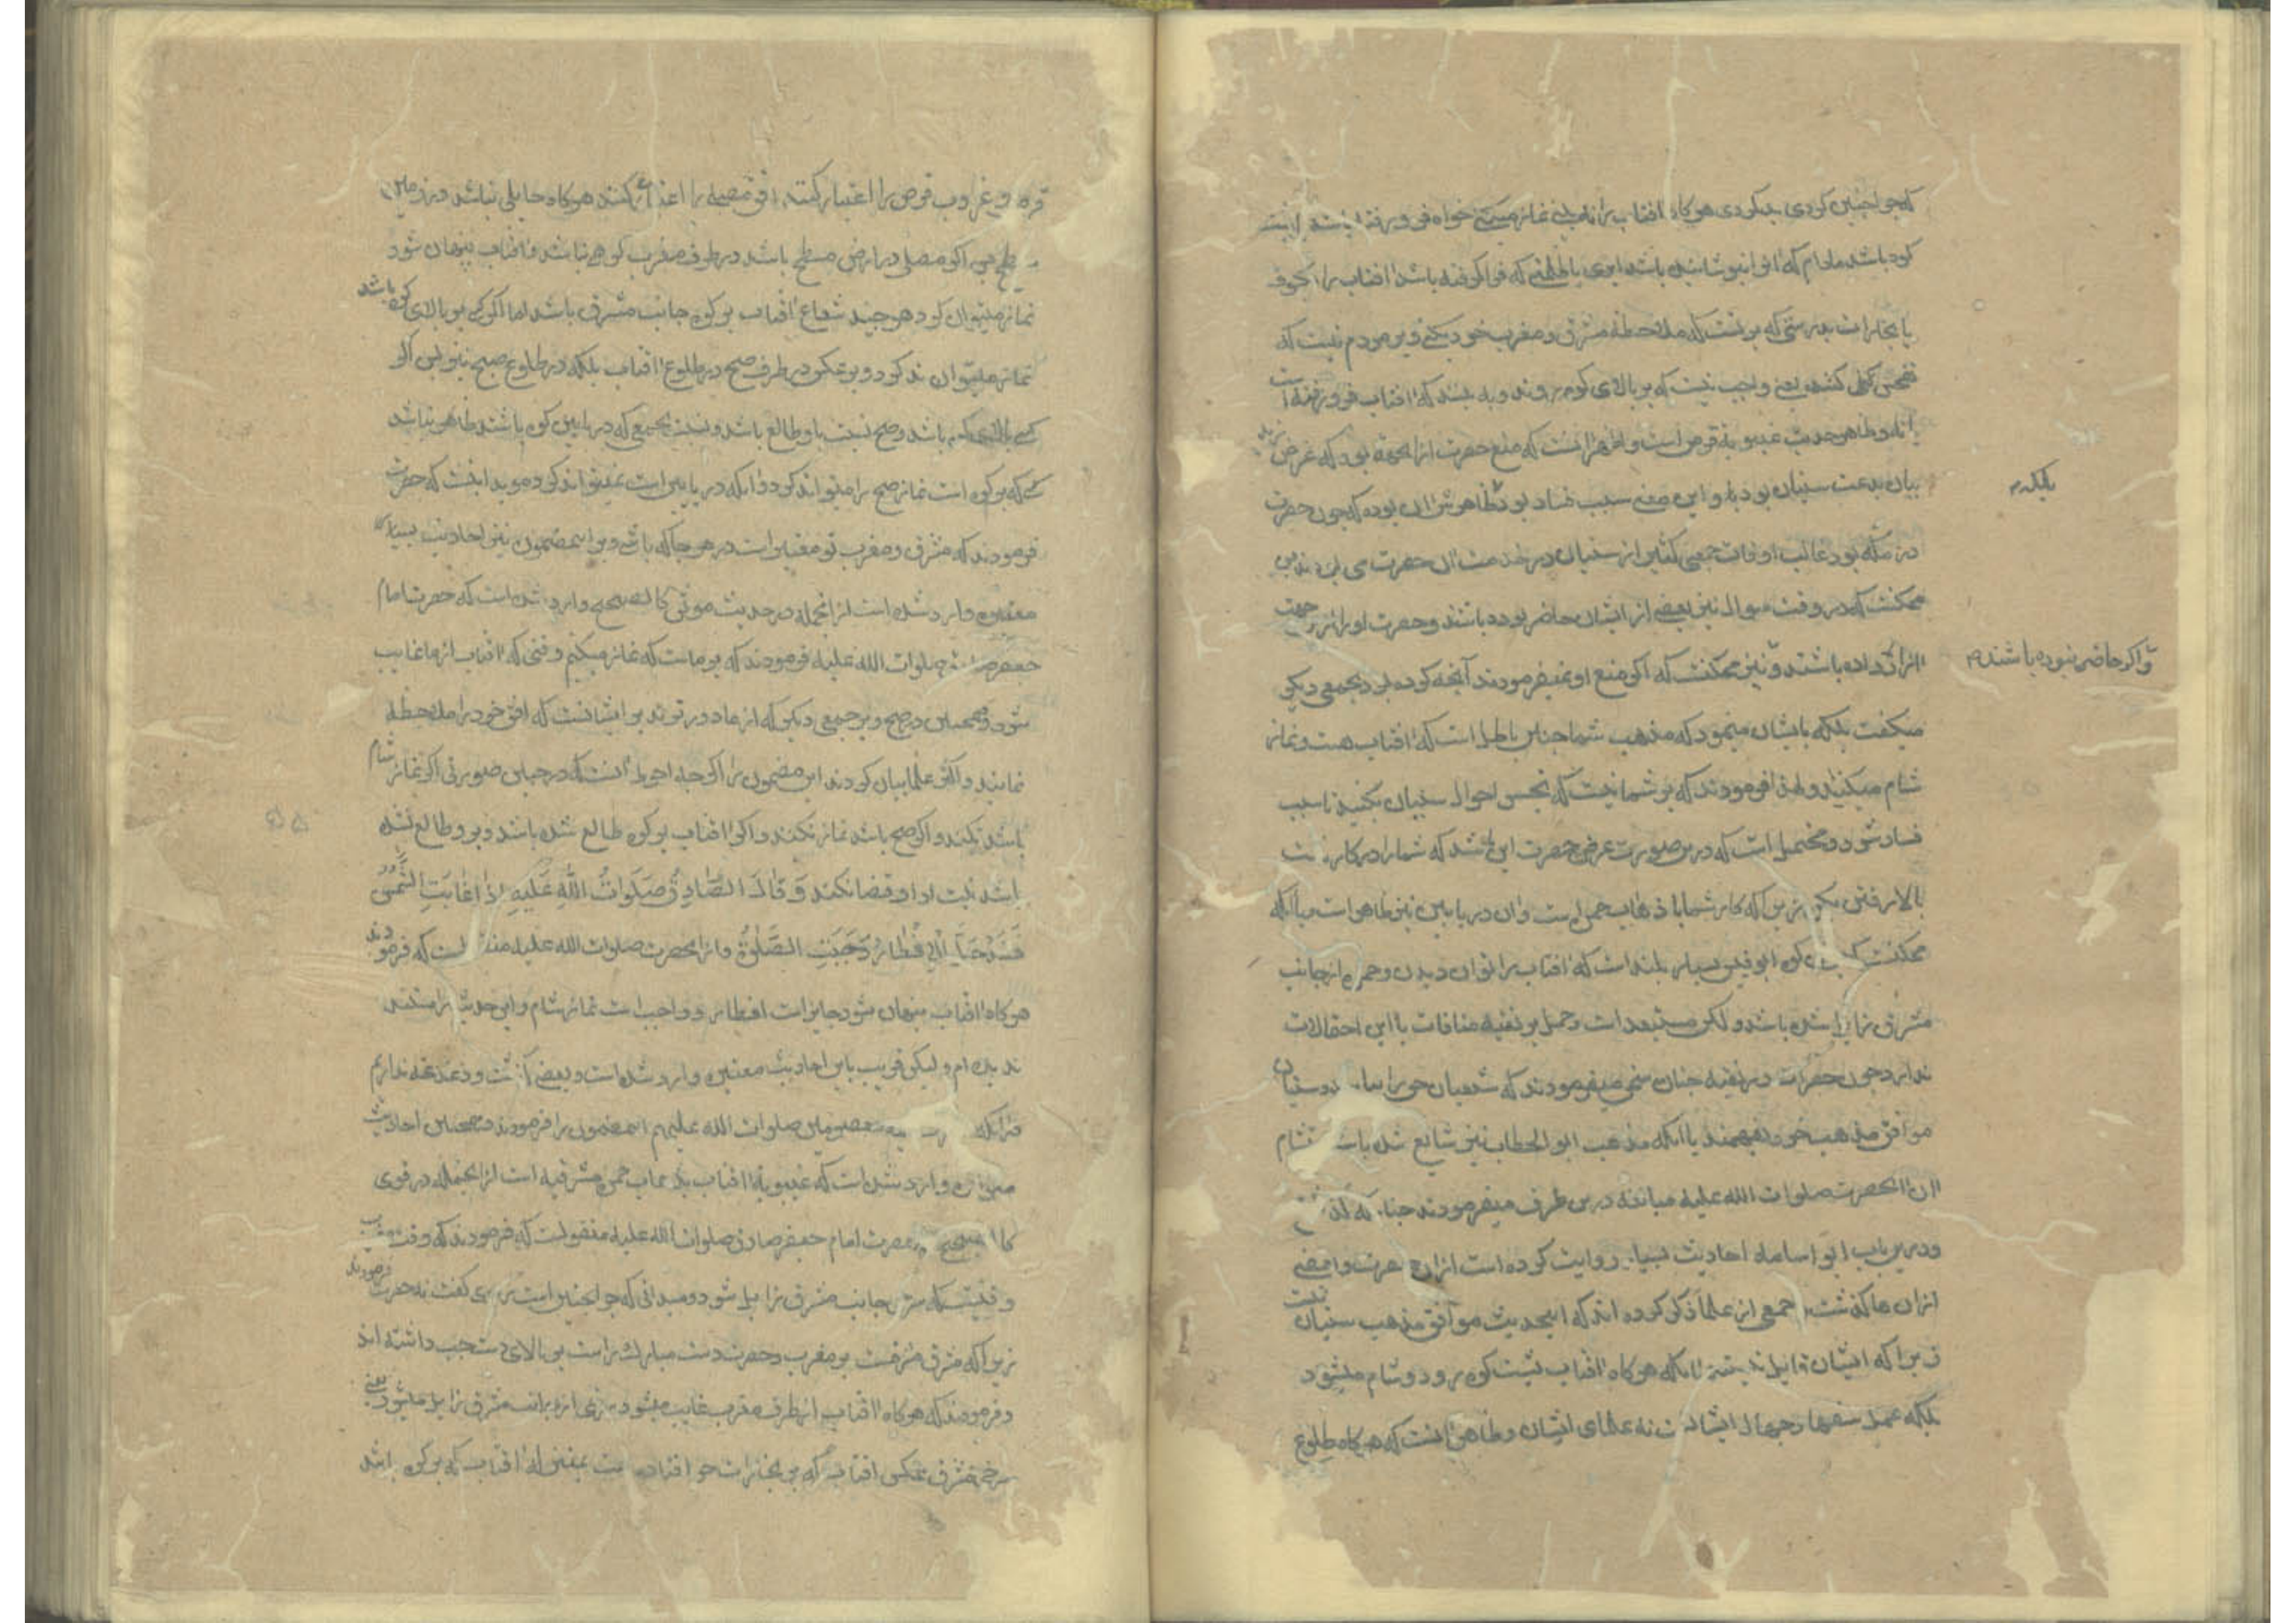 که چرا چنین کردی بد کردی هرگاه افتاب را نه بینی نماز میکنی خواه فرو رفته باشد
کوه باشد مادام که ابر انرا نپوشانیده باشد ابری یا ظلمتی که فرا گرفته باشد افتاب را
یا بخارات بدرستی که بر تست که ملاحظه مشرق و مغرب خود بکنی و بر مردم نیست که
تفحص کنند یعنی واجب نیست که بر بالای کوه روند و به بینند که افتاب فرو رفته است
یا نه و ظاهر حدیث غیبوبة قرص است و اظهر انست که منع حضرت از انجهة بود که غرض
بیان بدعت سنیان بود و این معنی سبب فساد بود و ظاهرش ان بوده که چون حضرت
بلکه
در مکه بود غالب اوقات جمعی کثیر از سنیان در خدمت ان حضرت می بودند پس
ممکنست که در وقت سوال نیز بعضی از ایشان حاضر بوده باشند و حضرت او را از جهت
ازار داده باشند و نیز ممکنست که اگر منع او نمیفرمودند آنچه کرده بود بجمعی دیگر
و اگر حاضر نبوده باشند
میگفت بلکه بایشان مینمود که مذهب شما چنان باطل است که افتاب هست و نماز
شام میکنید و لهذا فرمودند که بر شما نیست که تجسس احوال سنیان بکنید تا سبب
فساد شود و محتمل است که درین صورت غرض حضرت این باشد که شما را در کار نیست
بالا رفتن کوه زیرا که کار شما با ذهاب حمره است و ان در پایین نیز ظاهر است و یا آنکه
ممکنست که کوه ابو قبیس بسیار بلند است که افتاب را توان دیدن و حمره از جانب
مشرق زایل شده باشد و لکن مستبعد است و حمل بر تقیه منافات با این احتمالات
ندارد چون حضرات در تقیه چنان سخن میفرمودند که شیعیان حق را بیابند و سنیان
موافق مذهب خود بفهمند یا آنکه مذهب ابو الخطاب نیز شایع شده باشد
ان حضرت صلوات الله علیه مبالغه درین طرف میفرمودند چنانکه گذشت
و درین باب ابو اسامه احادیث بسیار روایت کرده است از ان حضرت و بعضی
از ان ها گذشت و جمعی از علما ذکر کرده اند که این حدیث موافق مذهب سنیان نیست
زیرا که ایشان قایل نیستند بانکه هرگاه افتاب پشت کوه رود و شام میشود
بلکه عمل سفها و جهال ایشانست نه علمای ایشان و ظاهر انست که هرگاه طلوع
و غروب قرص را اعتبار کنند افق مصلی را اعتبار کنند هرگاه حایلی نباشد
پس اگر مصلی در ارض مسطح باشد در طرف مغرب کوهی نباشد و افتاب پنهان شود
نماز میتوان کرد هر چند شعاع افتاب بر کوه جانب مشرق باشد اما اگر کسی بر بالای کوه باشد
نماز میتواند کرد و بر عکس در طرف صبح در طلوع افتاب بلکه در طلوع صبح نیز پس اگر
کسی بالای کوه باشد و صبح نسبت باو طالع باشد و نسبت بجمعی که در پایین کوه باشند ظاهر نباشد
کسی که بر کوه است نماز صبح را میتواند کرد و آنکه در پایین است نمیتواند کرد و موید اینست که حضرت
فرمودند که مشرق و مغرب تو معتبر است در هر جا که باشی و بر این مضمون نیز احادیث بسیار
معتبره وارد شده است از انجمله در حدیث موثق کالصحیح وارد شده است که حضرت امام
جعفر صادق صلوات الله علیه فرمودند که بر ماست که نماز میکنیم وقتی که افتاب از ما غایب
شود و همچنین در صبح و بر جمعی دیگر که از ما دورترند بر ایشانست که افق خود را ملاحظه
نمایند و اکثر علما بیان کردند این مضمون را اگر چه احوط آنست که در چنین صورتی اگر نماز شام
باشد نکند و اگر صبح باشد نماز نکند و اگر افتاب بر کوه طالع شده باشد و برو طالع نشده
باشد نیت ادا و قضا نکند وَ قَالَ الصَّادِقُ صَلَوَاتُ اللّٰهِ عَلَیْهِ إِذَا غَابَتِ الشَّمْسُ
فَقَدْ حَلَّ الْإِفْطَارُ وَ وَجَبَتِ الصَّلٰوةُ و از انحضرت صلوات الله علیه منقولست که فرمودند
هرگاه افتاب پنهان شود جایز است افطار و واجب است نماز شام و این حدیث را مسند
ندیده ام و لیکن قریب باین احادیث معتبره وارد شده است و بعضی گذشت و دغدغه نداریم
در آنکه معصومین صلوات الله علیهم این مضمون را فرمودند و همچنین احادیث
متواتره وارد شده است که غیبوبة افتاب بذهاب حمره مشرقیه است از انجمله در قوی
کالصحیح از حضرت امام جعفر صادق صلوات الله علیه منقولست که فرمودند که وقت مغرب
وقتیست که سرخی جانب مشرق زایل شود و میدانی که چرا چنین است راوی گفت نه حضرت فرمودند
زیرا که مشرق مشرفست بر مغرب و حضرت دست مبارک راست بر بالای دست چپ داشته اند
و فرمودند که هرگاه افتاب از طرف مغرب غایب میشود سرخی از جانب مشرق زایل میشود یعنی
سرخی مشرق عکس افتاب که بر بخارات جو افتاده است بغیر از افتاب که بر کوه باشد